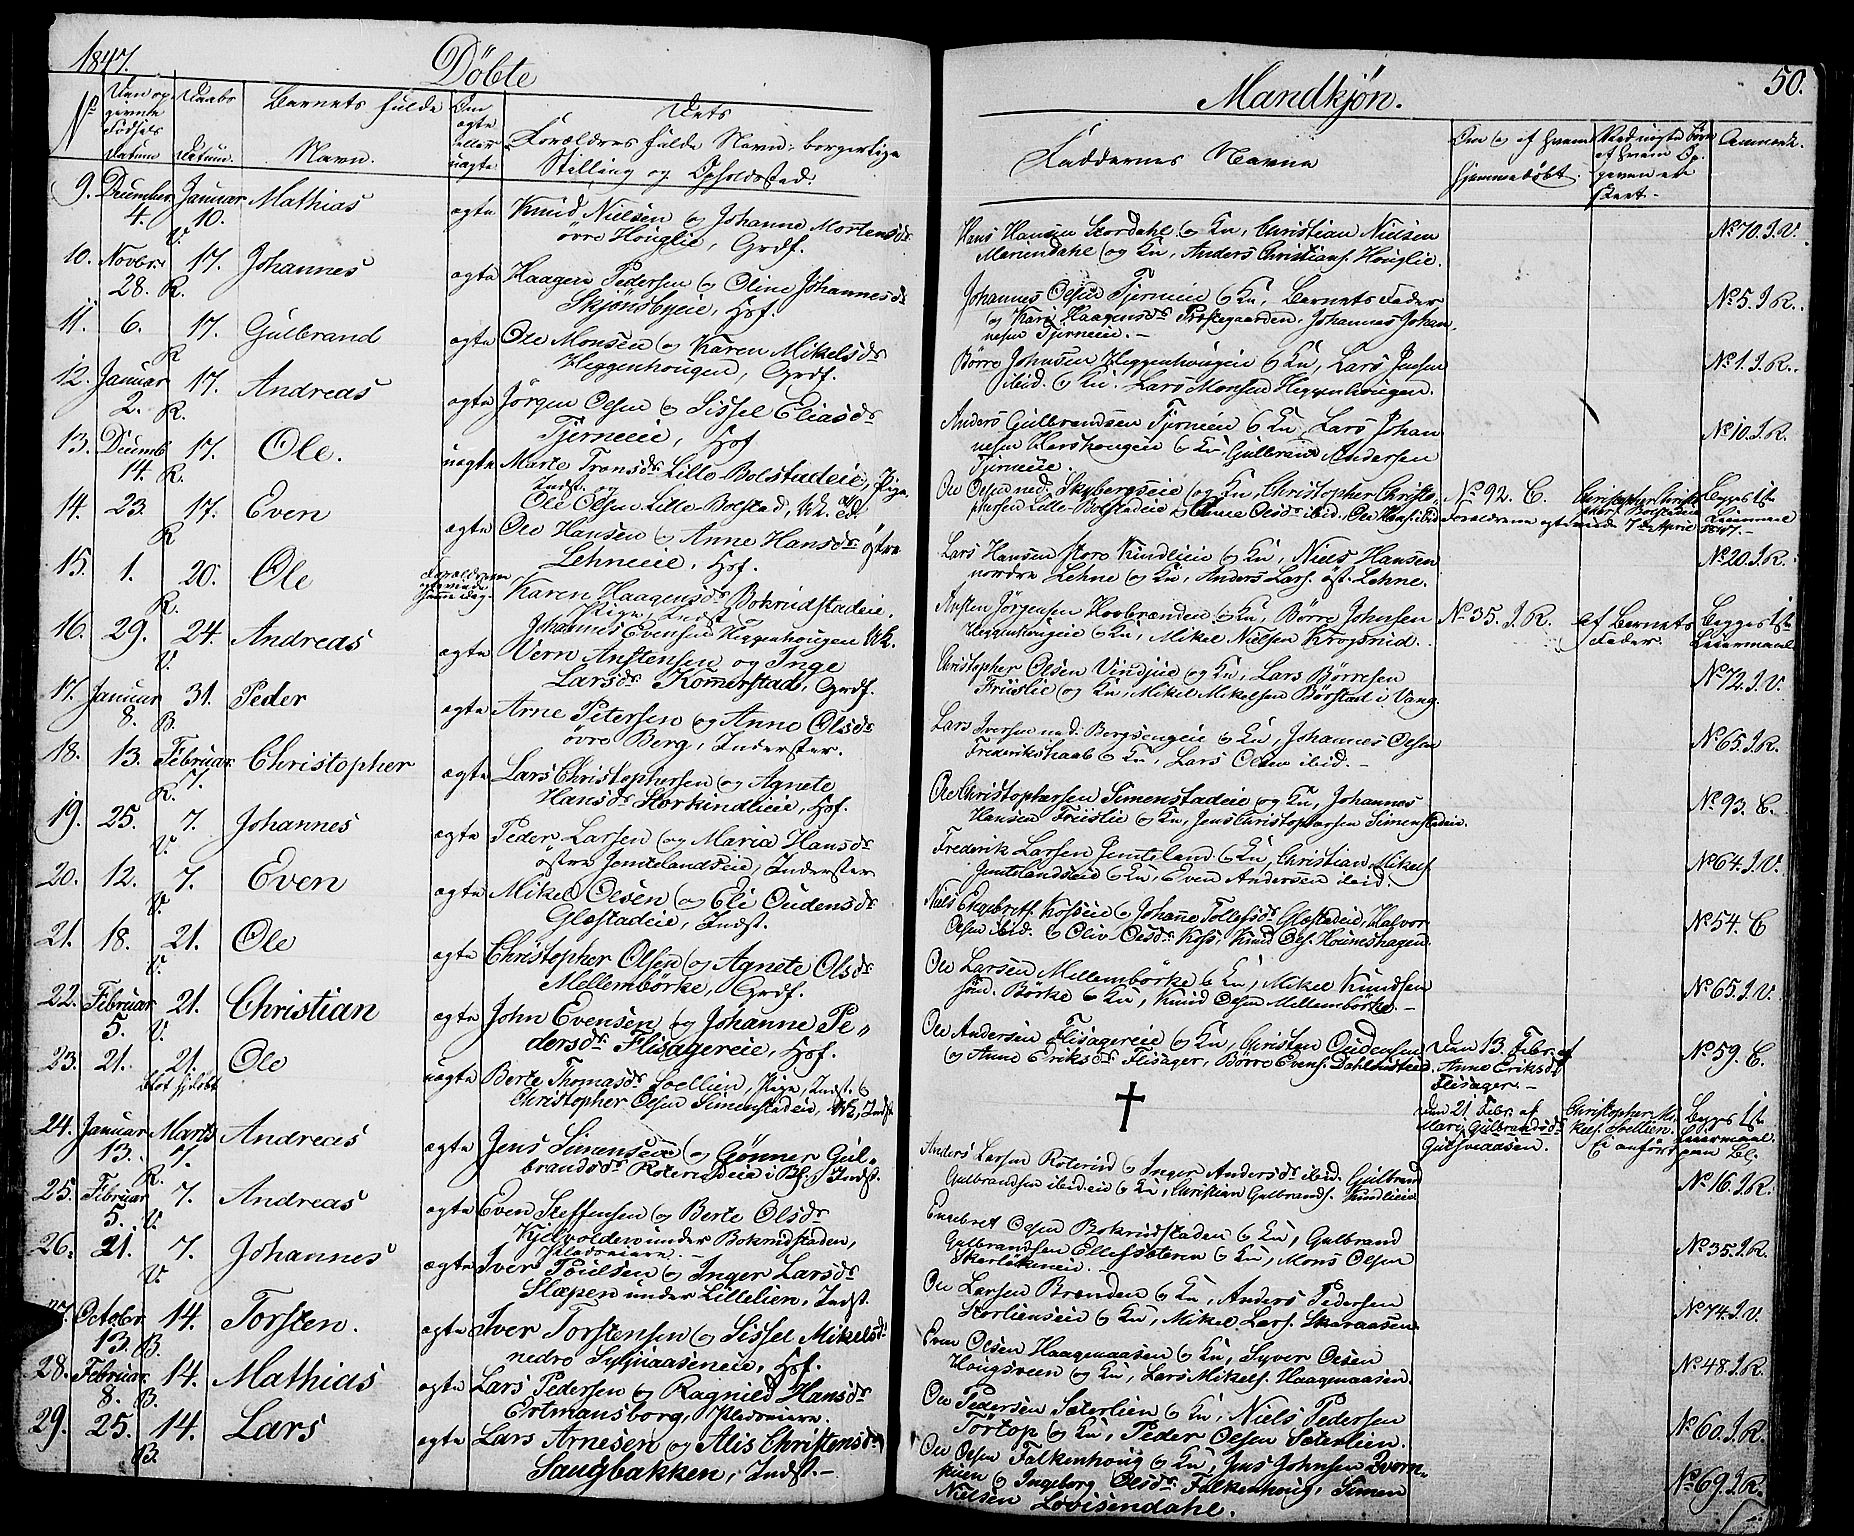 1847.
Döbte
Mandkjön.
50.
No
Den op
givne
Födsels
Datum
Daabs
Datum.
Barnets fulde
Navn.
Om
ægte
eller
uægte
Dets
Forældres fulde Navn, borgerlige
Stilling og Opholdssted.
Faddernes Navne
hjemmedöbt.
9. December 4. Januar 10. V. Mathias ægte Knud Nielsen og Johanne Mortensdr
övre Houglie, Grdf.
Hans Hansen Stordahl og Kn, Christian Nielsen
Mariendahl og Kn, Anders Christians. Houglie.
No 70. I. V.
10. Novbr. 28. 17. R. Johannes ægte Haagen Pedersen og Oline Johannesdr
Skjönsbyeie, Hsf.
Johannes Olsen Tjerneie og Kn, Barnets Fader
og Kari Haagensdr Præstegaarden, Johannes Johan
nesen Tjerneie.
No 5. I. R.
11. 6. 17. R Gulbrand ægte Ole Monsen og Karen Mikelsdr
Heggenhougen, Grdf.
Börre Johnsen Heggenhougeie og Kn, Lars Jensen
ibid. og Kn. Lars Monsen Heggenhougen.
No 1. I. R.
12. Januar 2. 17. R. Andreas ægte Jörgen Olsen og Sissel Eliasdr
Tjerneie, Hsf
Anders Gulbrandsen Tjerneie og Kn, Lars Johan
nesen Hershougeie og Kn. Gulbrand Andersen
Tjerneie.
No 10. I. R.
13. Decemb 14. 17. R. Ole. uægte Marte Tronsdr Lille Bolstadeie, Pige,
Indst. og
Ole Olsen Lille-Bolstad, Uk.
Ole Olsen ned. Skybergseie og Kn, Christopher Christo
phersen Lille-Bolstadeie og Anne Olsdr ibid. Ole Hans. ibid
No 92. C.
Forældrene ægteviede 7de April 1847.
Begges 1ste
Leiermaal
14. 23 17. R Even ægte Ole Hansen og Anne Hansdr östre
Lehneie, Hsf.
Lars Hansen store Kindlieie og Kn, Niels Hansen
nordre Lehne og Kn, Anders Lars. öst. Lehne.
No 20. I. R.
15. 1. 20. R. Ole
Forældrene
ægteviede
samme dag.
Karen Haagensdr Bokrudstadeie,
Pige, Indst og
Johannes Evensen Heggenhougen Uk.
Ansten Jörgensen Hovbrænden og Kn, Börre Johnsen
Heggenhougeie og Kn, Mikel Nielsen Krogsrud.
No 35. I. R.
af Barnets
Fader.
Begges 1ste
Leiermaal
16. 29. 24. V. Andreas ægte Vern Anstensen og Inge
Larsdr Komerstad, Grdf.
Christopher Olsen Vindjue og Kn, Lars Börresen
Friislie og Kn, Mikel Mikelsen Börstad i Vang.
No 72. I. V.
17. Januar 8. 31. B. Peder ægte Arne Petersen og Anne Olsdr
övre Berg, Inderster.
Lars Iversen ned. Bergsengeie og Kn, Johannes Olsen
Frederikshaab og Kn, Lars Olsen ibid.
No 65. I. R.
18. 13. Februar 7. R. Christopher ægte Lars Christophersen og Agnete
Hansdr Storkindlieie, Hsf.
Ole Christophersen Simenstadeie og Kn, Johannes
Hansen Friislie og Kn, Jens Christophersen Simenstadeie.
No 93. C.
19. 25. 7. V. Johannes ægte Peder Larsen og Maria Hansdr
östre Jemtelandseie, Inderster
Frederik Larsen Jemteland og Kn, Christian Mikels.
Jemtelandseie og Kn, Even Andersen ibid.
No 64. I. V.
20. 12. 7. V. Even ægte Mikel Olsen og Eli Oudensdr
Glæstadeie, Indst.
Niels Engebrets. Kosseie og Johanne Tollefsdr Glæstadeie, Halvor
Olsen ibid. og Oliv Olsdr Koss, Knud Ols. Houneshagen.
No 54. C
21. 18. 21. V. Ole ægte Christopher Olsen og Agnete Olsdr
Mellembörke, Grdf.
Ole Larsen Mellembörke og Kn, Mikel Knudsen
sönd. Börke og Kn, Knud Olsen Mellembörke.
No 65. I. V.
22. Februar 5. 21. V. Christian ægte John Evensen og Johanne Pe-
dersdr Flisagereie, Hsf.
Ole Andersen Flisagereie og Kn, Christen Oudensen
og Anne Eriksdr Flisager, Börre Evens. Dahlbusteie.
Den 13. Febr. af
Anne Eriksdr
Flisager.
No 59. C.
23. 21. 21. blot hjdöbt Ole uægte Berte Thomasdr Loellien, Pige, Indst. og
Christopher Olsen Simenstadeie, Uk, Indst
†
den 21 Febr. af
Mari Gulbrandsdr
Gulsveaasen.
Christopher Mi
kels. Loellien.
Ei anfört
Begges 1ste
Leiermaal.
24. Januar 13. Marts 7. R. Andreas ægte Jens Simensen og Gönner Gul-
brandsdr Roterudeie i Bl., Indst.
Anders Larsen Roterud og Inger Andersdr ibid. Gulbrand
Gulbrandsen ibideie og Kn, Christian Gulbrands. Kindlieie
No 16. I. R.
25. Februar 5. 7. V. Andreas ægte Even Steffensen og Berte Olsdr
Kjelvolden under Bokrudstaden,
Pladseiere.
Engebret Olsen Bokrudstaden og Kn, Gulbrand
Gulbrandsen Ellefsæteren og Kn, Mons Olsen
Skarlökeneie.
No 35. I. R.
26. 21. 7. V. Johannes ægte Iver Poulsen og Inger Larsdr
Slæpen under Lillelien, Indst.
Ole Larsen Brænden og Kn, Anders Pedersen
Storlienseie og Kn, Mikel Lars. Skaraasen.
No 74. I. V.
27. October 13. 14. B. Torsten. ægte Iver Torstensen og Sissel Mikelsdr
nedre Syljuaaseneie, Hsf.
Even Olsen Haagenaasen og Kn, Syver Olsen
Hougsveen og Kn, Lars Mikels. Haagenaasen.
No 48. I. R.
28. Februar 8. 14. B. Mathias ægte Lars Pedersen og Ragnild Hansdr
Ertmansborg, Pladseiere.
Ole Pedersen Sæterlien og Kn, Niels Pedersen
Törtop og Kn, Peder Olsen Sæterlien.
No 60. I. R.
29. 25. 14. B. Lars ægte Lars Arnesen og Alis Christensdr
Saugbakken, Indst.
Ole Olsen Falkenhoug og Kn, Jens Johnsen Kvern-
kuen og Ingeborg Olsdr Falkenhoug, Simen
Nielsen Lovisendahl.
No 69. I. R.